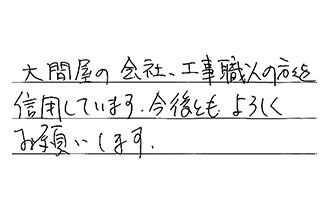 大問屋の会社、工事職人の方々を
信用しています。今後とも よろしく
お願いします。